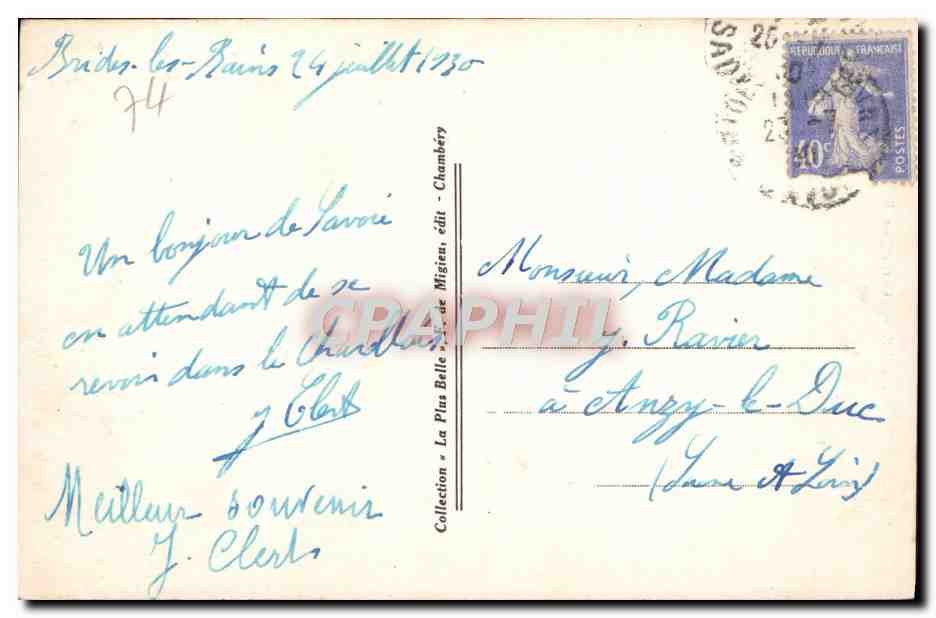 Brides-les-Bains 24 juillet 1930
74
Un bonjour de Savoie
en attendant de se
revoir dans le
J Clert
Meilleur souvenir
J. Clert
Collection « La Plus Belle » de Migieu, édit - Chambéry
REPUBLIQUE FRANÇAISE
40c
POSTES
CPAPHIL
Monsieur, Madame
J. Ravier
à Anzy-le-Duc
(Saône & Loire)